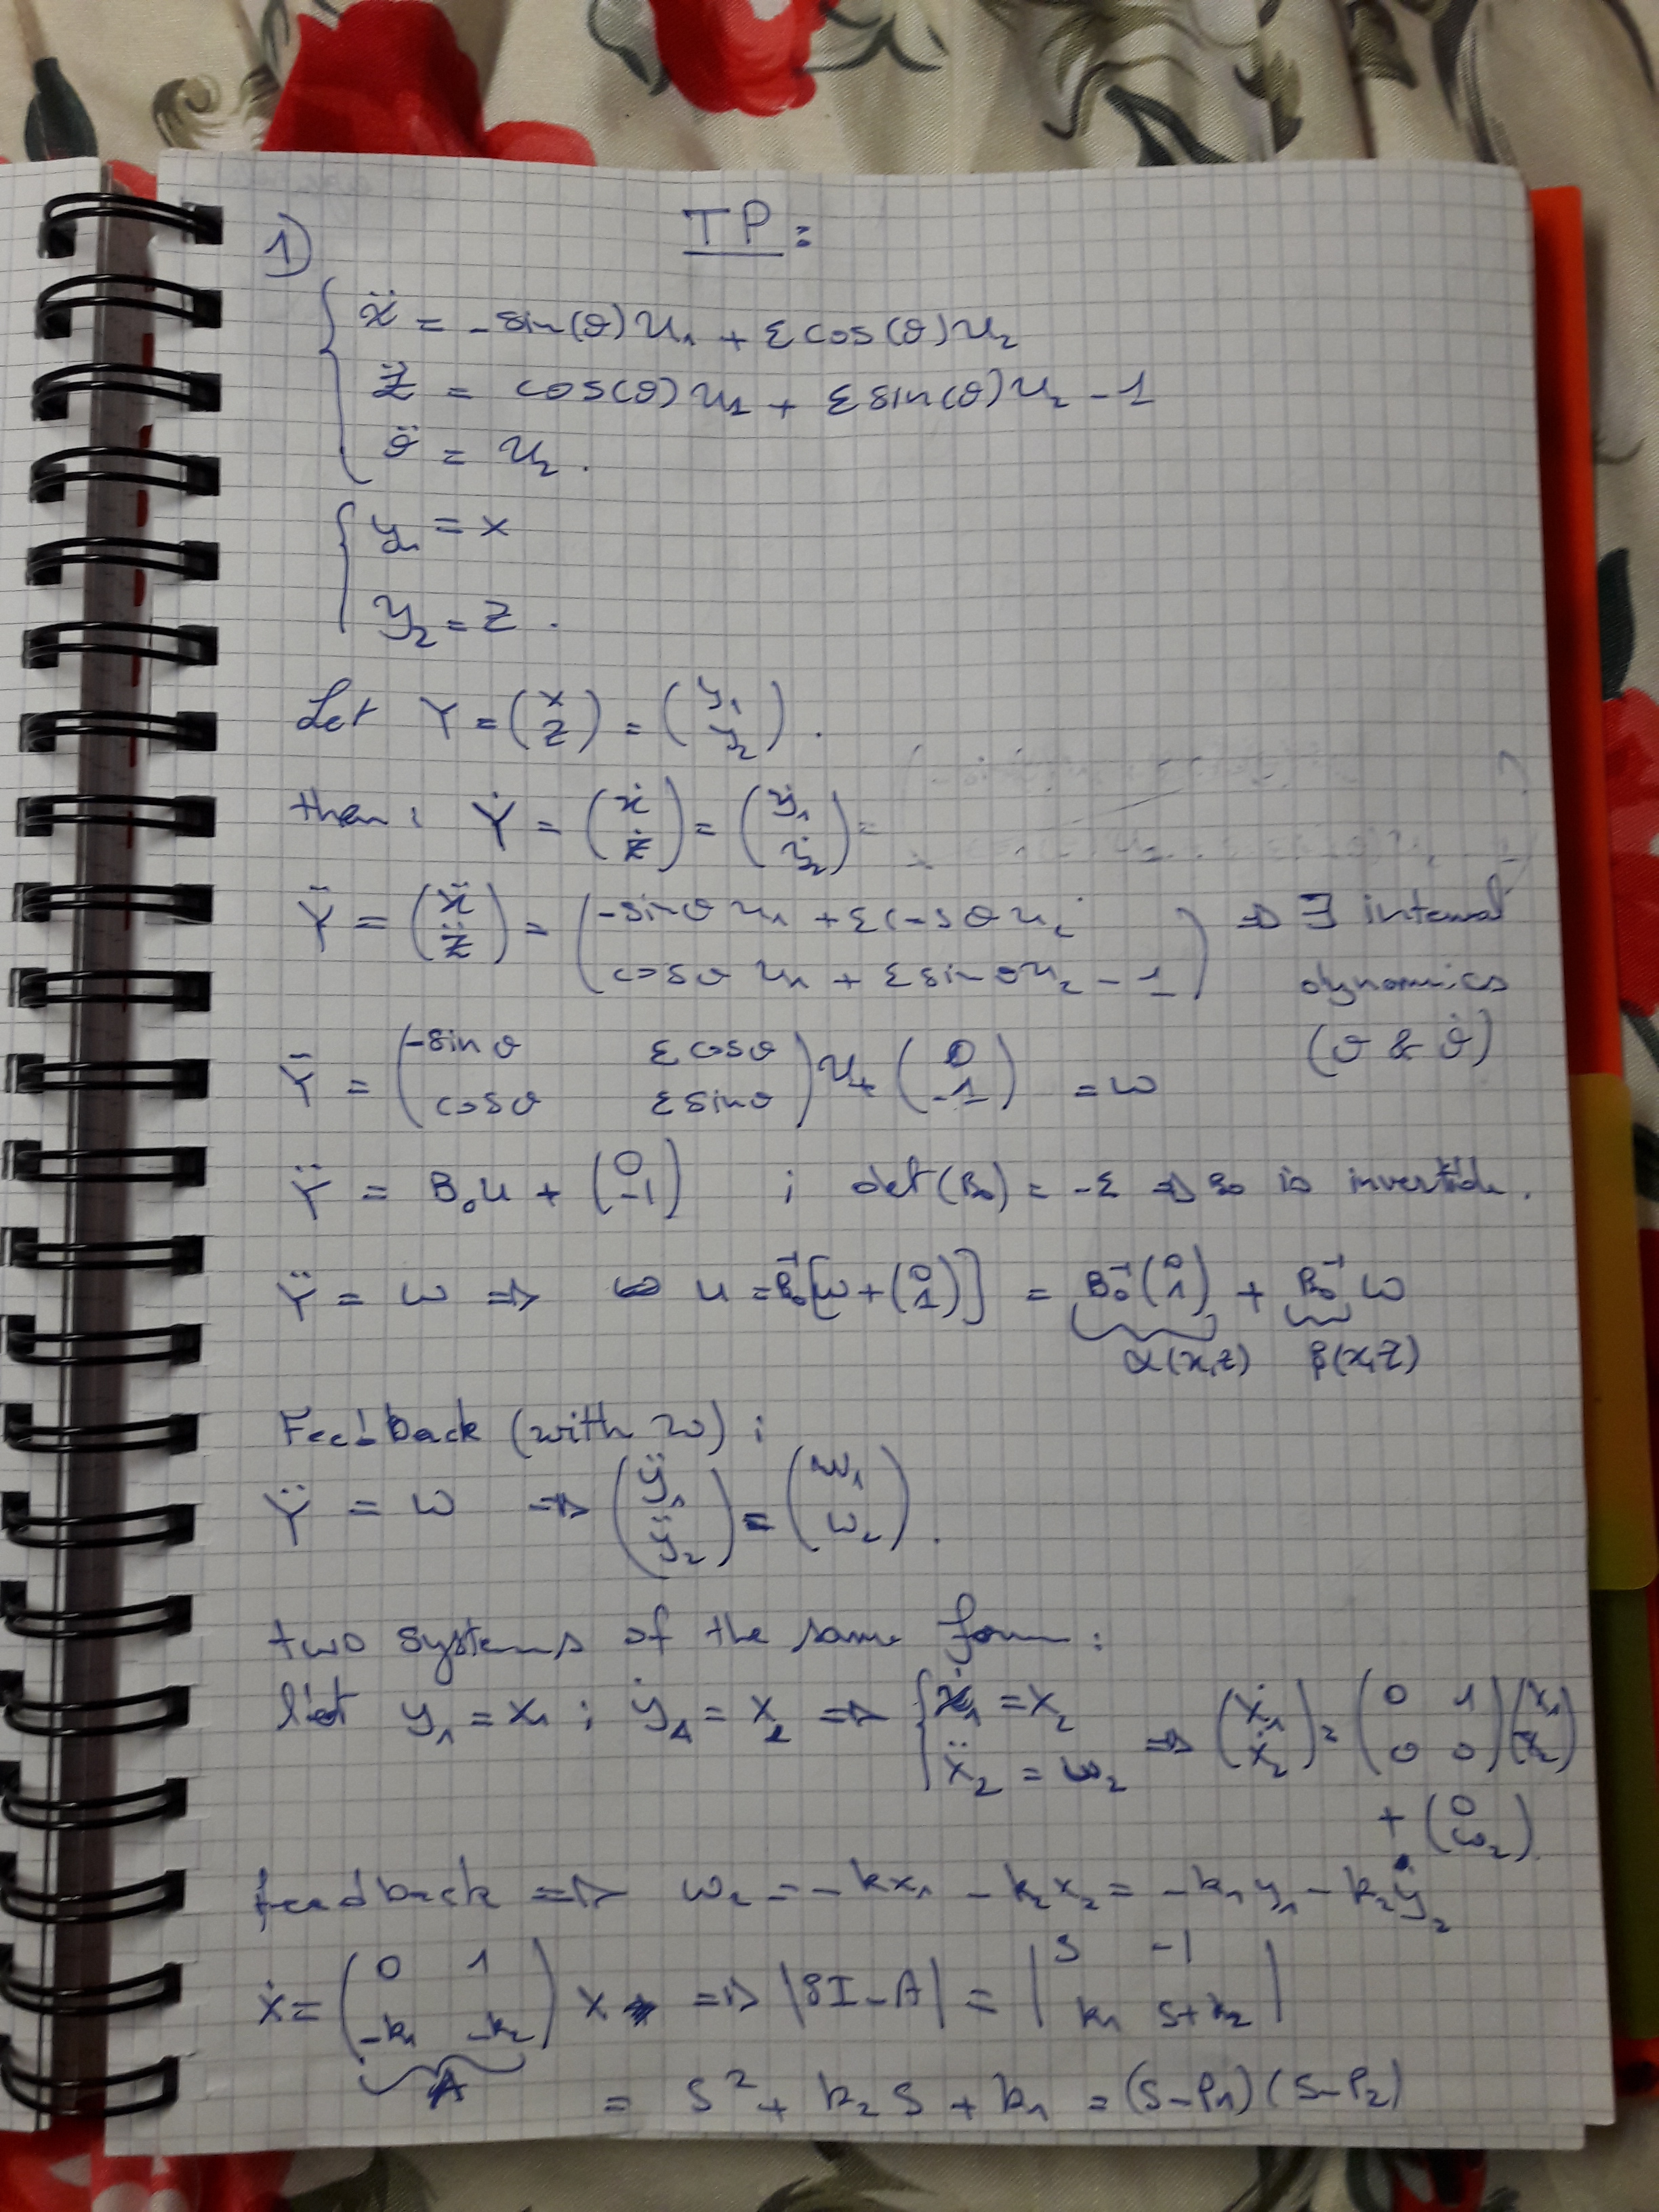 TP:
1)
ẍ = -sin(θ)u₁ + εcos(θ)u₂
z̈ = cos(θ)u₁ + εsin(θ)u₂ - 1
θ̈ = u₂.
y₁ = x
y₂ = z.
Let Y = (x z) = (y₁ y₂).
then: Ẏ = (ẋ ż) = (ẏ₁ ẏ₂) =
Ÿ = (ẍ z̈) = (-sinθ u₁ + εcosθ u₂ cosθ u₁ + εsinθ u₂ - 1) ⇒ ∃ internal dynamics (θ & θ̇)
Ÿ = (-sinθ εcosθ cosθ εsinθ) u + (0 -1) = ω
Ÿ = B₀u + (0 -1) ; det(B₀) = -ε ⇒ B₀ is invertible.
Ÿ = ω ⇒ ⇔ u = B₀⁻¹[ω + (0 1)] = B₀⁻¹(0 1) + B₀⁻¹ ω
α(x,z) β(x,z)
Feedback (with ω):
Ÿ = ω ⇒ (ÿ₁ ÿ₂) = (ω₁ ω₂).
two systems of the same form:
let y₁ = x₁ ; ẏ₁ = x₂ ⇒ ẋ₁ = x₂ ẍ₂ = ω₂ ⇒ (ẋ₁ ẋ₂) = (0 1 0 0)(x₁ x₂)
+ (0 ω₂)
feedback ⇒ ω₂ = -kx₁ - k₂x₂ = -k₁y₁ - k₂ẏ₂
Ẋ = (0 1 -k₁ -k₂) X ⇒ |SI-A| = |S -1 k₁ S+k₂|
A
= S² + k₂S + k₁ = (S-P₁)(S-P₂)